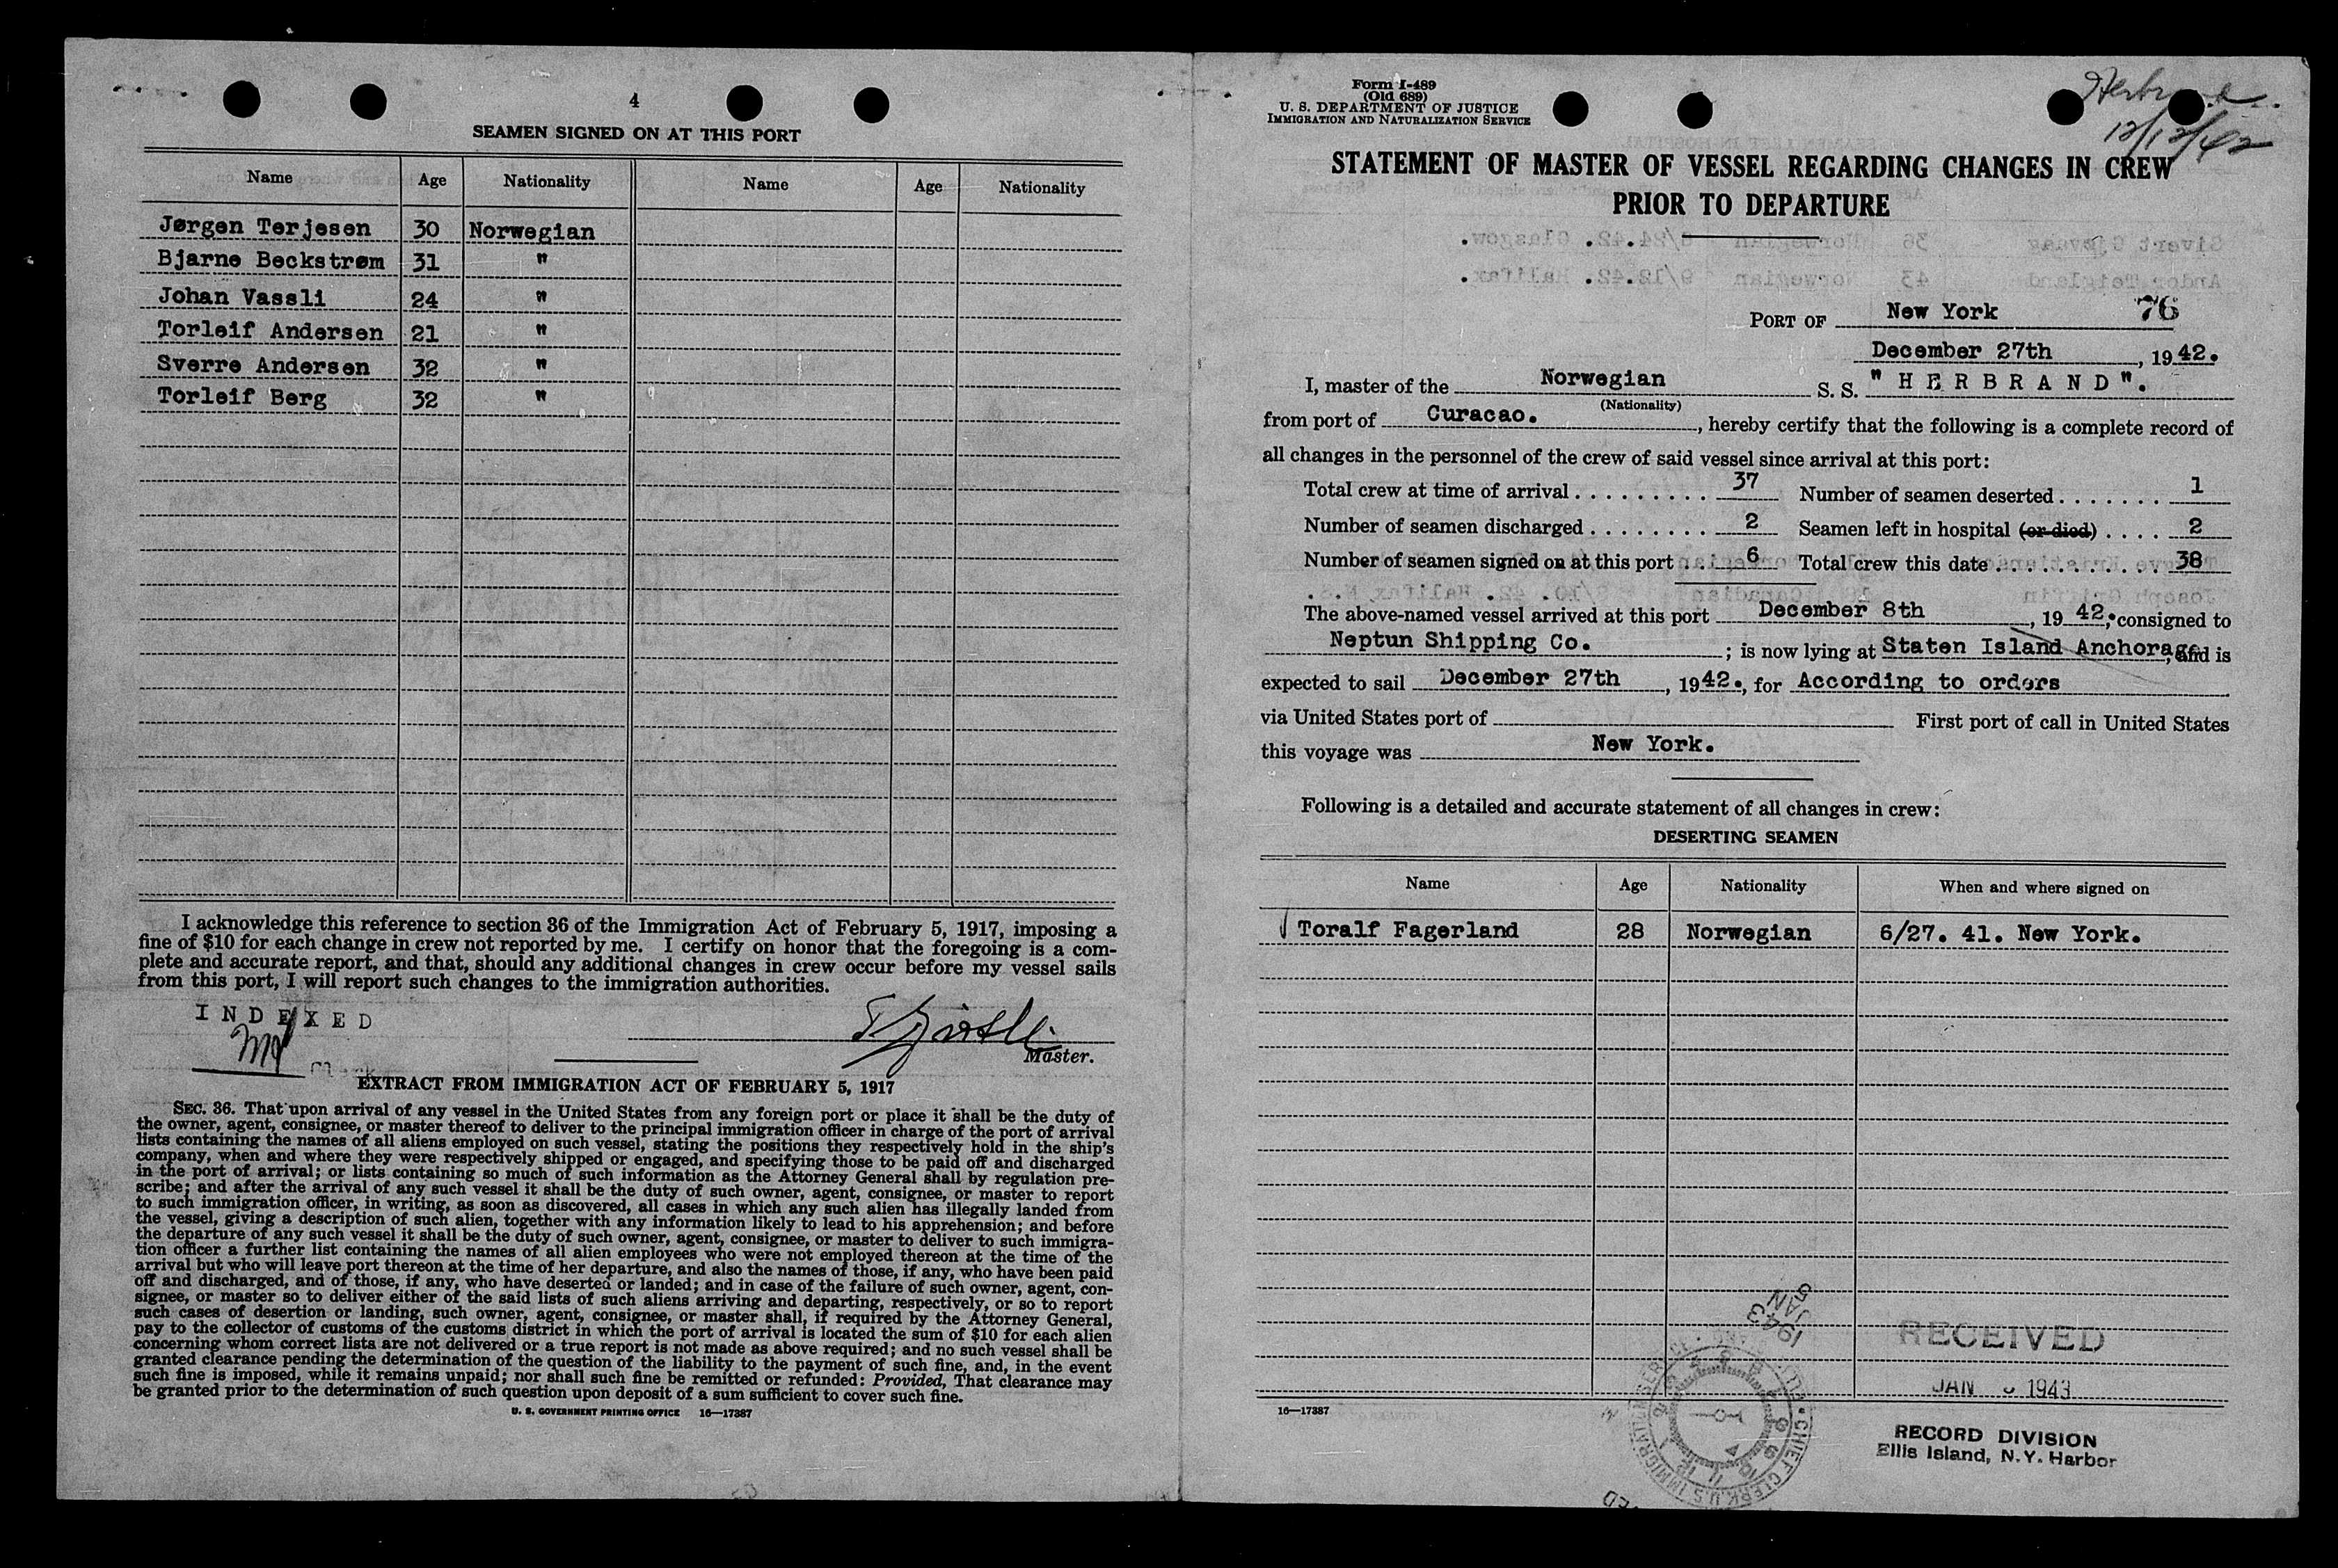 4
SEAMEN SIGNED ON AT THIS PORT
Name Age Nationality Name Age Nationality
Jørgen Terjesen 30 Norwegian
Bjarne Beckstrøm 31 "
Johan Vassli 24 "
Torleif Andersen 21 "
Sverre Andersen 32 "
Torleif Berg 32 "
I acknowledge this reference to section 36 of the Immigration Act of February 5, 1917, imposing a
fine of $10 for each change in crew not reported by me. I certify on honor that the foregoing is a com-
plete and accurate report, and that, should any additional changes in crew occur before my vessel sails
from this port, I will report such changes to the immigration authorities.
INDEXED
Master.
Clerk
EXTRACT FROM IMMIGRATION ACT OF FEBRUARY 5, 1917
SEC. 36. That upon arrival of any vessel in the United States from any foreign port or place it shall be the duty of
the owner, agent, consignee, or master thereof to deliver to the principal immigration officer in charge of the port of arrival
lists containing the names of all aliens employed on such vessel, stating the positions they respectively hold in the ship's
company, when and where they were respectively shipped or engaged, and specifying those to be paid off and discharged
in the port of arrival; or lists containing so much of such information as the Attorney General shall by regulation pre-
scribe; and after the arrival of any such vessel it shall be the duty of such owner, agent, consignee, or master to report
to such immigration officer, in writing, as soon as discovered, all cases in which any such alien has illegally landed from
the vessel, giving a description of such alien, together with any information likely to lead to his apprehension; and before
the departure of any such vessel it shall be the duty of such owner, agent, consignee, or master to deliver to such immigra-
tion officer a further list containing the names of all alien employees who were not employed thereon at the time of the
arrival but who will leave port thereon at the time of her departure, and also the names of those, if any, who have been paid
off and discharged, and of those, if any, who have deserted or landed; and in case of the failure of such owner, agent, con-
signee, or master so to deliver either of the said lists of such aliens arriving and departing, respectively, or so to report
such cases of desertion or landing, such owner, agent, consignee, or master shall, if required by the Attorney General,
pay to the collector of customs of the customs district in which the port of arrival is located the sum of $10 for each alien
concerning whom correct lists are not delivered or a true report is not made as above required; and no such vessel shall be
granted clearance pending the determination of the question of the liability to the payment of such fine, and, in the event
such fine is imposed, while it remains unpaid; nor shall such fine be remitted or refunded: Provided, That clearance may
be granted prior to the determination of such question upon deposit of a sum sufficient to cover such fine.
U. S. GOVERNMENT PRINTING OFFICE 16—17387
Form I-489
(Old 689)
U. S. DEPARTMENT OF JUSTICE
IMMIGRATION AND NATURALIZATION SERVICE
12/12/42
STATEMENT OF MASTER OF VESSEL REGARDING CHANGES IN CREW
PRIOR TO DEPARTURE
PORT OF New York 76
December 27th, 1942.
I, master of the Norwegian S. S. "HERBRAND".
(Nationality)
from port of Curacao., hereby certify that the following is a complete record of
all changes in the personnel of the crew of said vessel since arrival at this port:
Total crew at time of arrival . . . . . . . . . . 37 Number of seamen deserted . . . . . . . 1
Number of seamen discharged . . . . . . . . 2 Seamen left in hospital (or died) . . . . 2
Number of seamen signed on at this port . . . 6 Total crew this date . . . . . . . . . . . . 38
The above-named vessel arrived at this port December 8th, 1942., consigned to
Neptun Shipping Co. ; is now lying at Staten Island Anchorage, and is
expected to sail December 27th, 1942., for According to orders
via United States port of First port of call in United States
this voyage was New York.
Following is a detailed and accurate statement of all changes in crew:
DESERTING SEAMEN
Name Age Nationality When and where signed on
Toralf Fagerland 28 Norwegian 6/27. 41. New York.
JAN 5 1943
RECEIVED
JAN 1943
16—17387
CHIEF CLERK U.S. IMMIGRATION
RECORD DIVISION
Ellis Island, N.Y. Harbor